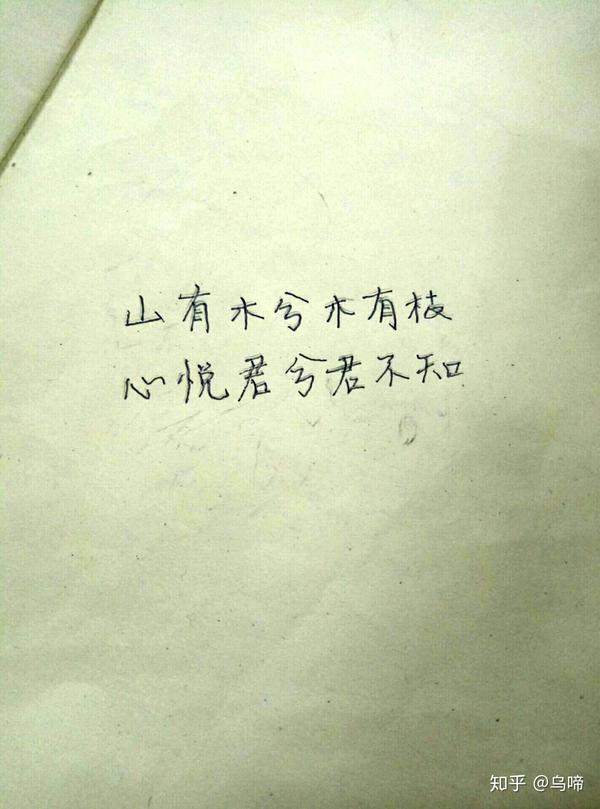 山有木兮木有枝
心悦君兮君不知
知乎 @乌啼